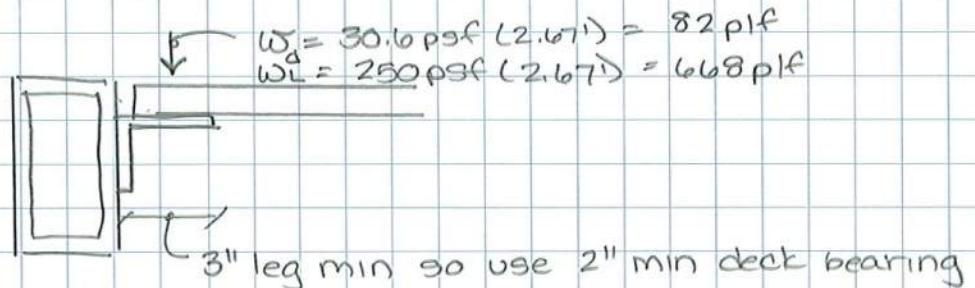 Wd = 30.6 psf (2.67') = 82 plf
WL = 250 psf (2.67') = 668 plf
3" leg min so use 2" min deck bearing